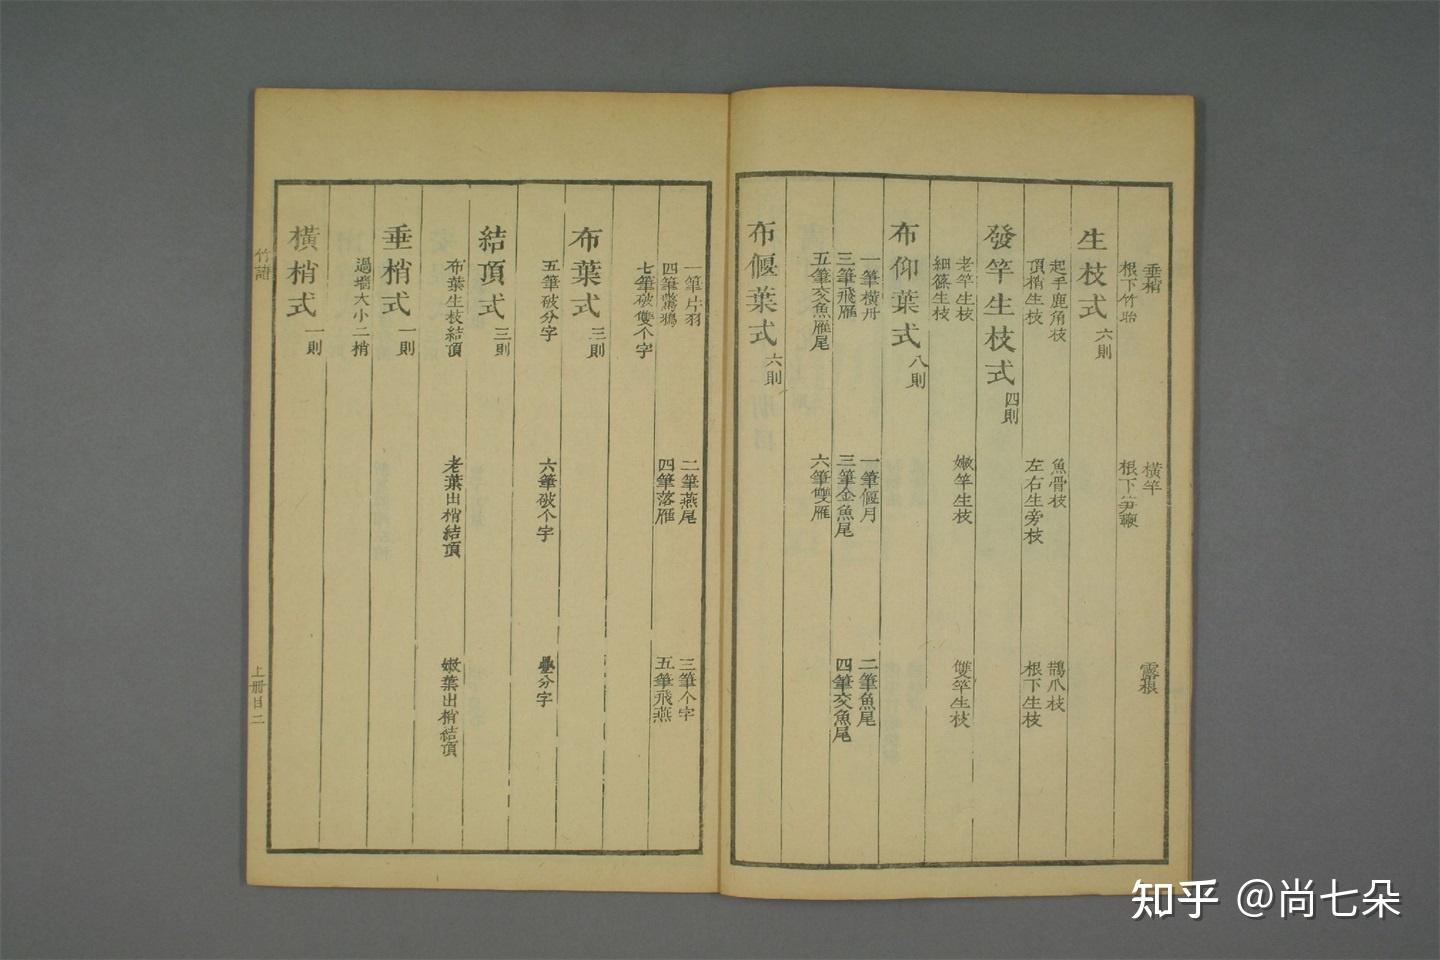 垂梢　橫竿　露根
根下竹胎　根下笋鞭
生枝式　六則
起手鹿角枝　魚骨枝　鵲爪枝
頂梢生枝　左右生旁枝　根下生枝
發竿生枝式　四則
老竿生枝　嫩竿生枝　雙竿生枝
細篠生枝
布仰葉式　八則
一筆橫舟　一筆偃月　二筆魚尾
三筆飛雁　三筆金魚尾　四筆交魚尾
五筆交魚雁尾　六筆雙雁
布偃葉式　六則
一筆片羽　二筆燕尾　三筆个字
四筆驚鴉　四筆落雁　五筆飛燕
七筆破雙个字
布葉式　三則
五筆破分字　六筆破个字　疊分字
結頂式　三則
布葉生枝結頂　老葉出梢結頂　嫩葉出梢結頂
垂梢式　一則
過墻大小二梢
橫梢式　一則
竹譜　上册目二
知乎 @尚七朵